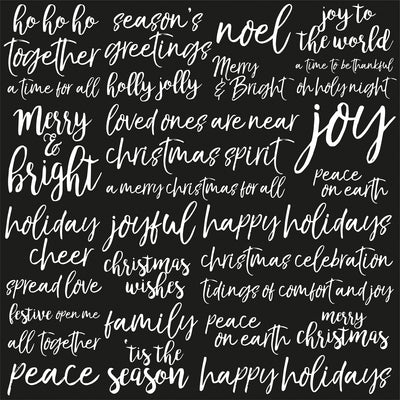 ho ho ho
season's
greetings
noel
joy to
the world
together
a time for all
holly jolly
Merry
& Bright
a time to be thankful
oh holy night
Merry
&
bright
loved ones are near
christmas spirit
a merry christmas for all
joy
peace
on earth
holiday
cheer
joyful
happy holidays
spread love
christmas
wishes
christmas celebration
tidings of comfort and joy
festive open me
all together
family
peace
on earth
merry
christmas
peace
'tis the
season
happy holidays